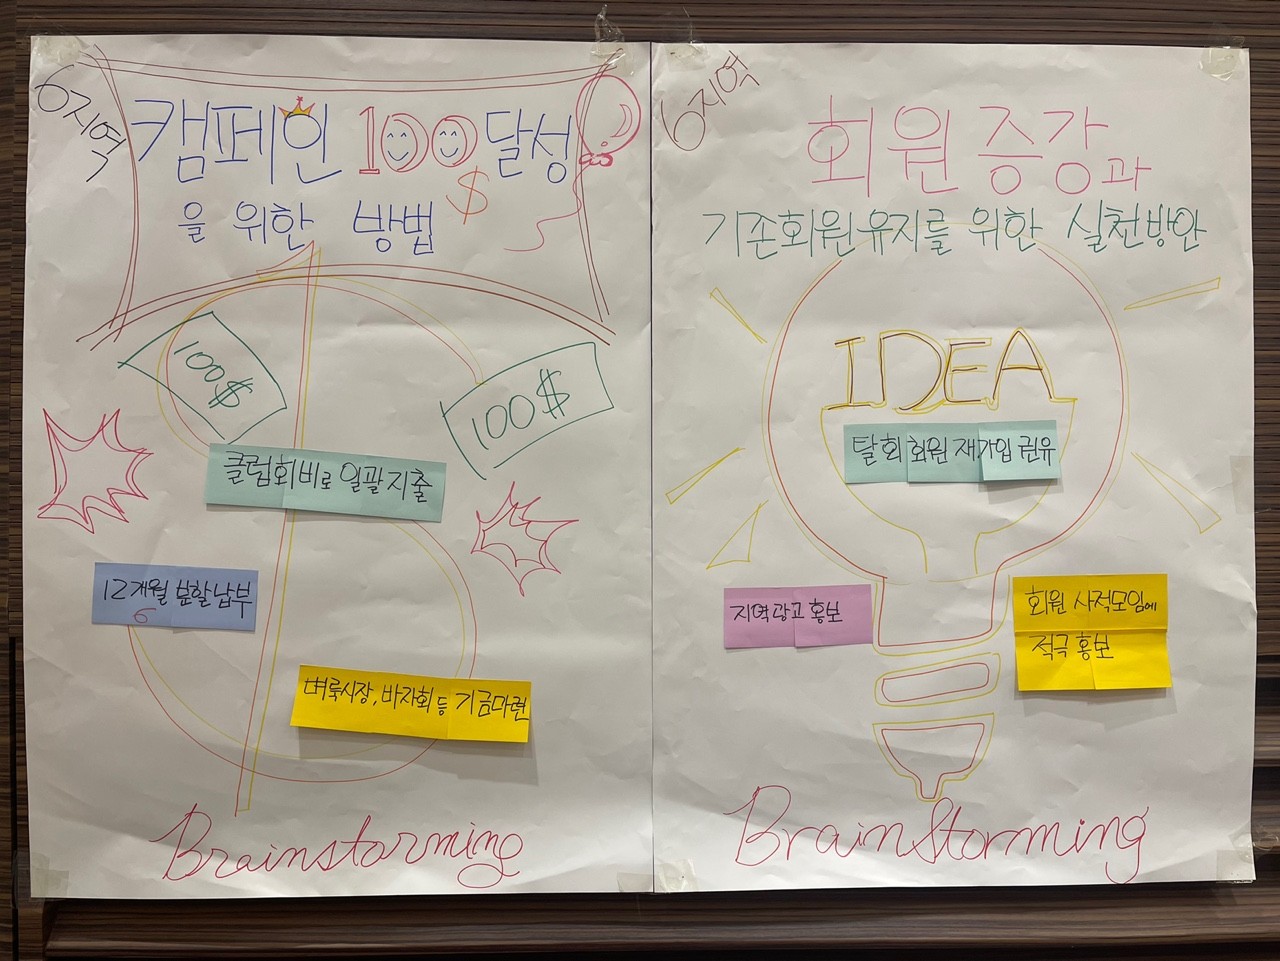 6지역
캠페인 100 달성
$
을 위한 방법
100$
100$
클럽회비로 일괄지출
12개월 분할납부
6
벼룩시장, 바자회 등 기금마련
Brainstorming
6지역
회원 증강과
기존회원유지를 위한 실천방안
IDEA
탈회 회원 재가입 권유
지역광고 홍보
회원 사적모임에
적극 홍보
BrainStorming